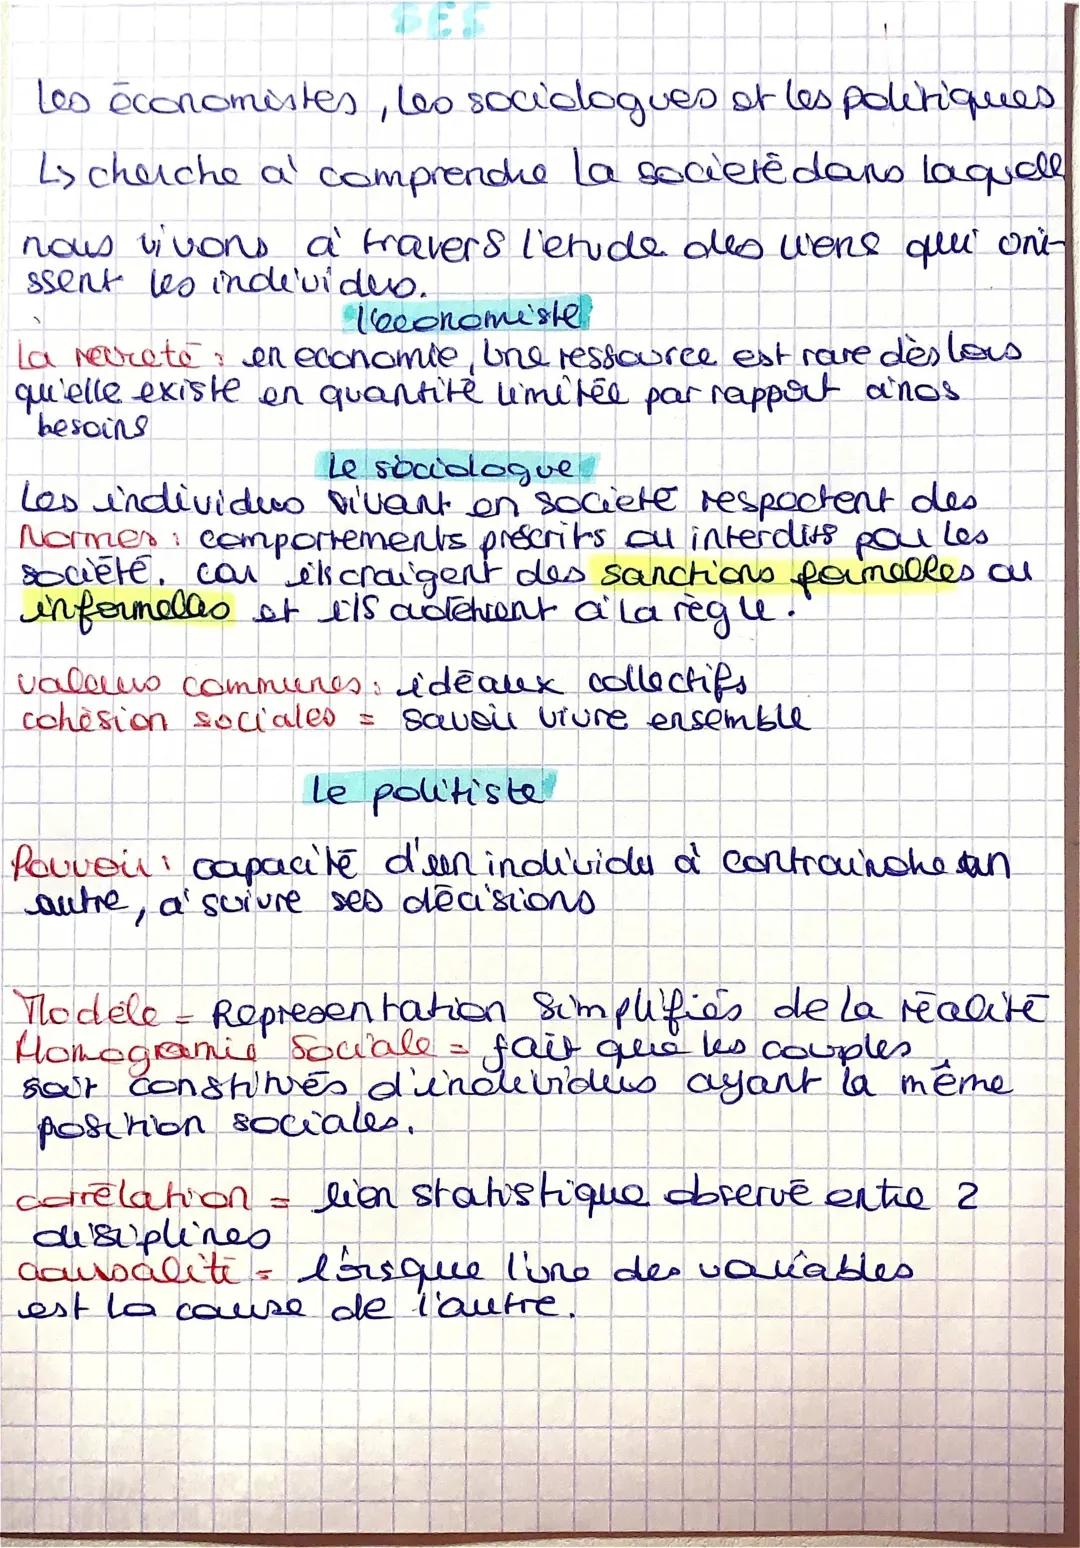 SES
Les économistes, les sociologues et les politiques
↳ cherche à comprendre la societé dans laquelle
nous vivons à travers l'etude des liens qui oni-
ssent les individus.
l'economiste
La rareté : en economie, une ressource est rare dès lors
qu'elle existe en quantité limitée par rapport à nos
besoins
Le sociologue
Les individus vivant en societé respectent des
Normes : comportements préscrits ou interdits par les
société. car ils craigent des sanctions formelles ou
informelles et ils adhèrent à la règle.
valeurs communes : idéaux collectifs
cohésion sociales = savoir vivre ensemble
Le politiste
Pouvoir : capacité d'un individu à contraindre un
autre, à suivre ses décisions
Modéle = Representation simplifiés de la réalité
Homogamie Sociale = fait que les couples
soit constitués d'individus ayant la même
position sociales.
corrélation = lien statistique observé entre 2
disiplines
causalité = lorsque l'une des variables
est la cause de l'autre.